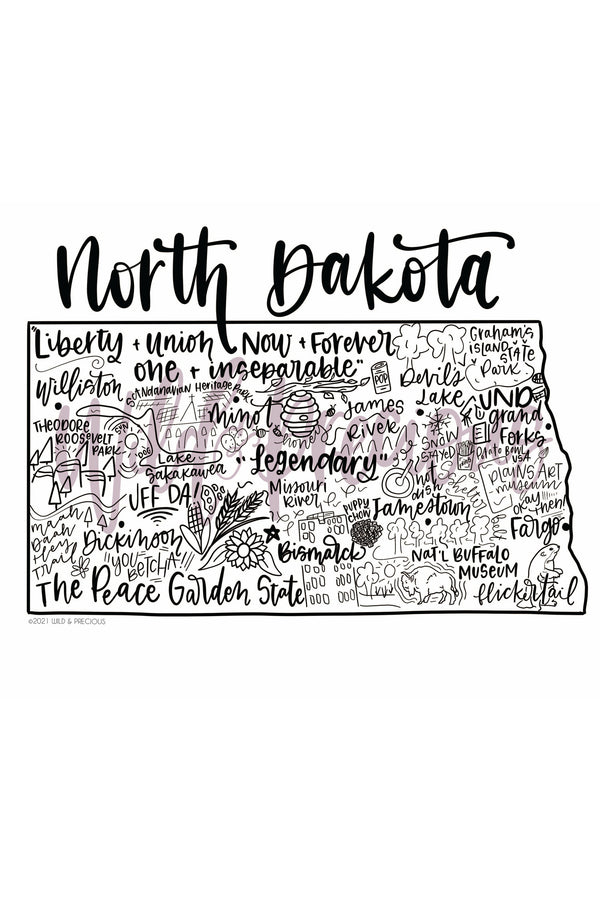 North Dakota
"Liberty + Union Now + Forever
one + inseparable"
Graham's
ISLAND STATE
Park
Williston
Scandanavian Heritage Park
POP
Devil's
Lake
UND
grand
Forks
THEODORE
ROOSEVELT
PARK
minot
honey
James
River
SNOW
STAYED
Potato Bowl
USA
Lake
Sakakawea
"Legendary"
PLAINS ART
museum
UFF DA!
Missouri
River
PUPPY
CHOW
hot
dish
Jamestown
okay then!
Fargo
maah
daah
hey
Trail
Dickinson
"YOU BETCHA"
Bismarck
NAT'L BUFFALO
MUSEUM
The Peace Garden State
flickertail
©2021 WILD & PRECIOUS